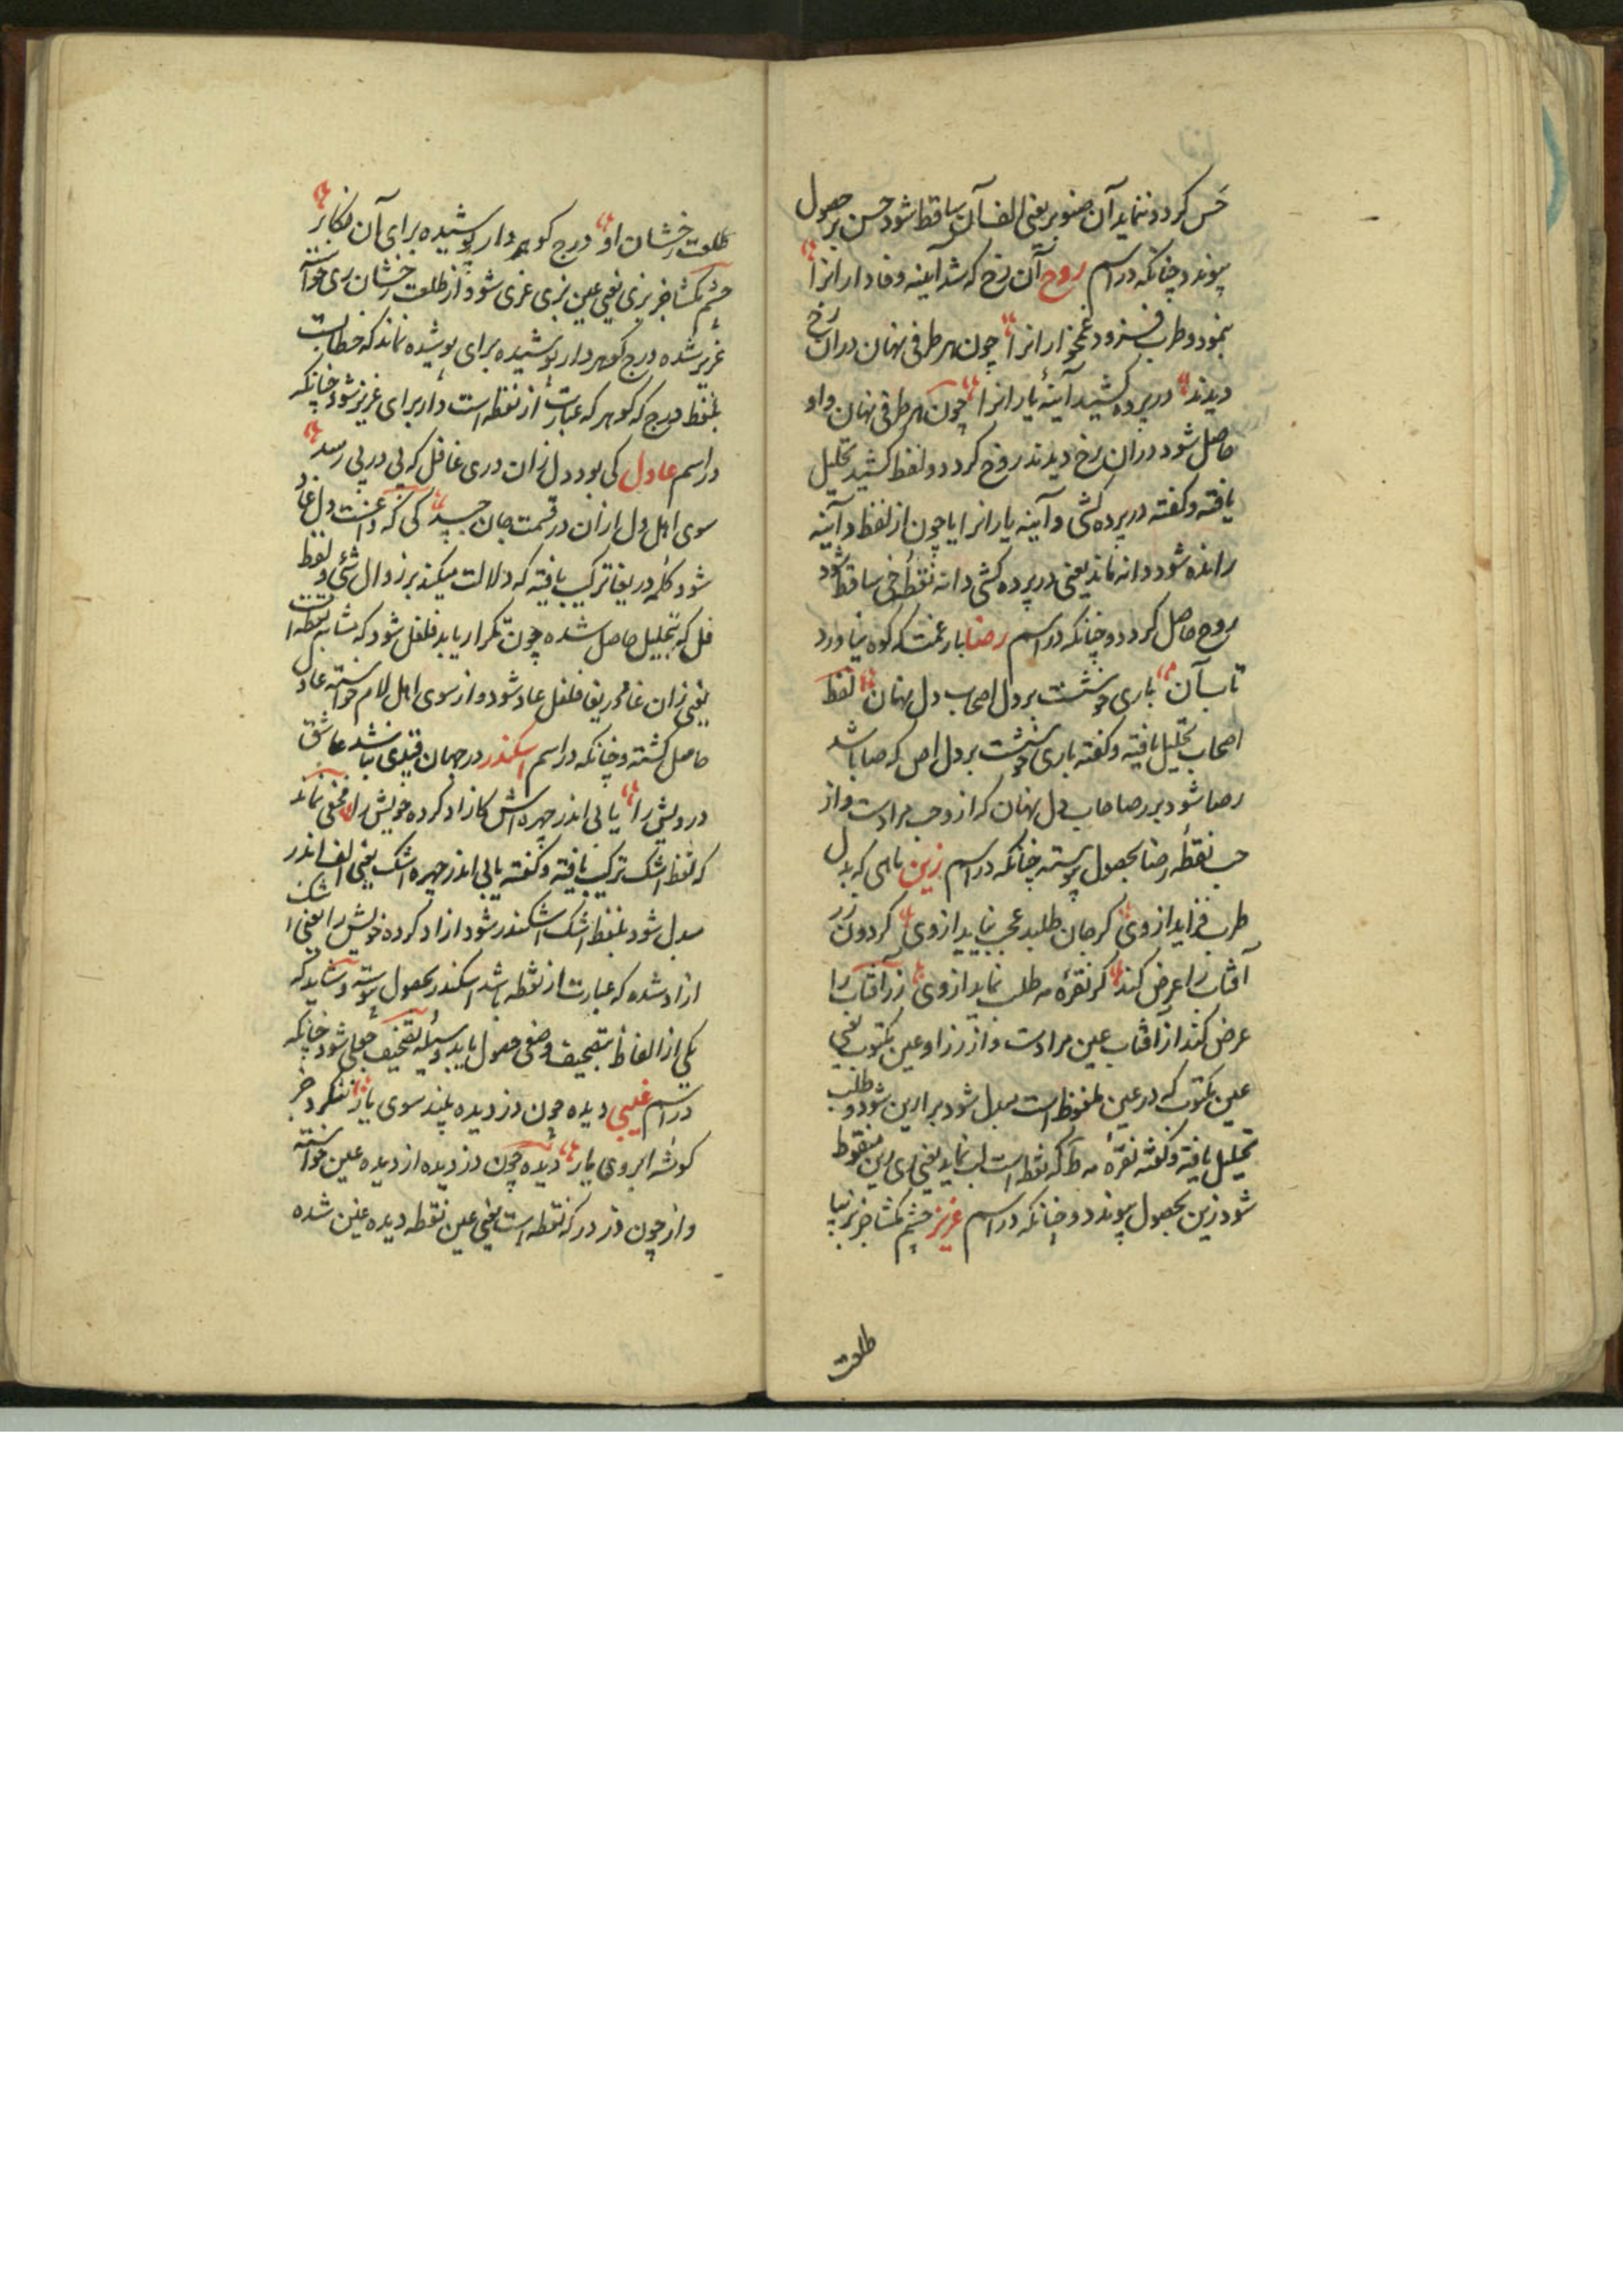 حس کردد ننماید آن صنوبر یعنی الف آن ساقط شود حسن بر حصول
پیوندد چنانکه در اسم روح آن رخ که شد آینه وفاداران را
بنمود و طرب فزود غمخواران را چون هر طرفی نهان دران رخ
دیدند در پرده کشید آینهٔ یاران را چون هر طرفی نهان واو
حاصل شود دران رخ دیدند روخ کردد و لفظ کشید تحلیل
یافته و کفته در پرده کشی و آینه یارانرا یا چون از لفظ دآینه
رانده شود دانه نماند یعنی در پرده کشی دانه نقطهٔ خی ساقط شود
روح حاصل کردد و چنانکه در اسم رضا بار غمت که کوه نیاورد
تاب آن باری خوشست بر دل اصحاب دل نهان لفظ
اصحاب تحلیل یافته و کفته باری خوشست بر دل اص که صا باشد
رصا شود بر رصا حاب دل نهان که ازو حب مرادست و از
حب نقطه رضا بحصول پیوسته چنانکه در اسم زین ماهی که بدل
طرب فزاید از وی کر جان طلبد عجب نماید از وی کردون زر
آفتاب را عرض کند کر نقرهٔ مه طلب نماید از وی زر آفتاب را
عرض کند از آفتاب عین مرادست و از زر او عین مکتوب یعنی
عین مکتوب که در عین ملفوظ است مبدل شود برا رین شود و طلب
تحلیل یافته و کفته نقرهٔ مه ط که نقطه است لب نماید یعنی ری رین منقوط
شود زین بحصول پیوندد و چنانکه در اسم عزیز چشم مکشا جز بزیبا
طلعت
طلعت رخشان او درج کوهر دار پوشیده برای آن نکار
چشم مکشا جز بزی یعنی عین بزی عزی شود و از طلعت رخشان ری خواسته
عزیر شده درج کوهر دار پوشیده برای پوشیده نماند که خطابست
بلفظ درج که کوهر که عبارت از نقطه است دار برای عزیز شود چنانکه
در اسم عادل کی بود دل زان دری غافل که پی در پی رسد
سوی اهل دل ازان در قسمت جان جسد کی که داغست دل عاد
شود کلمه دریغا ترکیب یافته که دلالت میکند بر زوال شئی و لفظ
فل که بتحلیل حاصل شده چون تکرار یابد فلفل شود که مشابه نقطه است
یعنی زان غاد دریغا فلفل عاد شود و از سوی اهل لام خواسته عادل
حاصل کشته و چنانکه در اسم اسکندر در جهان قیدی نباشد عاشق
درویش را یابی اندر چهره اش کازاد کرده خویش را مخفی نماند
که لفظ اشک ترکیب یافته و کفته یابی اندر چهره اشک یعنی الف اندر
مبدل شود بلفظ اشک اشکندر شود ازاد کرده خویش را یعنی اشک
ازاد شده که عبارت از نقطه باشد اسکندر بحصول پیوسته و شاید که
یکی از الفاظ بتصحیف وضعی حصول یابد وسیله تصحیف جعلی شود چنانکه
در اسم غیبی دیده چون دزدیده بیند سوی یار ننکرد جز
کوشه ابروی یار دیده چون دزدیده از دیده عین خواسته
و از چون دز در که نقطه است یعنی عین نقطه دیده غین شده